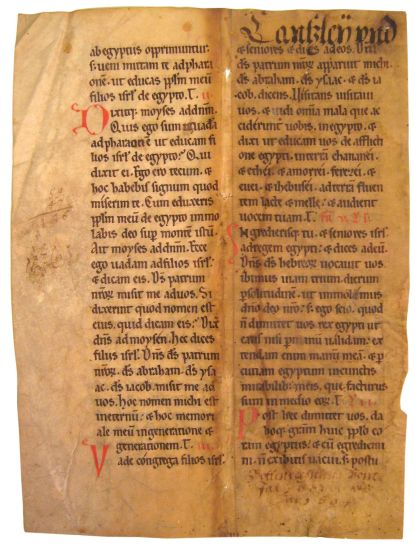 Cantzley vnd
ab egyptiis opprimuntur
s; veni mittam te ad phara
onē. ut educas pplm meū
filios isrl de egypto. T.
Dixitq; moyses ad dnm.
Quis ego sum ut vadā
ad pharaonē ut educam fi
lios isrl de egypto? Qui
dixit ei. Ego ero tecum. &
hoc habebis signum quod
miserim te. Cum eduxeris
pplm meū de egypto immo
labis deo sup montē istū.
Ait moyses ad dnm. Ecce
ego vadam ad filios isrl.
& dicam eis. Ds patrum
nrōꝝ misit me ad vos. Si
dixerint quod nomen est
eius, quid dicam eis? Dix̄
dns ad moysen. hec dices
filiis isrl. Dns ds patrum
nrōꝝ. ds abraham. ds ysa
ac. ds iacob. misit me ad
vos. hoc nomen michi est
in eternū. & hoc memori
ale meū in generatione &
generationem. T.
Vade congrega filios isrl.
& seniores & dices ad eos. Dns
ds patrum nrōꝝ apparuit michi.
ds abraham. ds ysaac. & ds ia
cob. dicens. Visitans visitavi
vos. & vidi omīa mala que ac
ciderunt vobis in egypto. & di
xi ut educam vos de afflicti
one egypti. in terrā chananei.
& ethei. & amorrei. ferezei. &
evei. & ihebusei. ad terrā fluen
tem lacte & melle. & audient
vocem tuam. T.
Ingredierisq; tu & seniores isrl
ad regem egypti. & dices ad eū.
Dns ds hebreoꝝ vocavit vos.
ibimus viam trium dierum
p solitudinē. ut immolemus
dno deo nro. s; ego scio. quod
n dimittet vos rex egypti ut
eatis nisi p manū validam. ex
tendam enim manū meā. & p
cutiam egyptum in cunctis
mirabilib; meis. que facturus
sum in medio eoꝝ. T.
Post hec dimittet vos. da
boq; grām huic pplo co
ram egyptiis. & cū egrediemi
ni. n exibitis vacui. s; postu